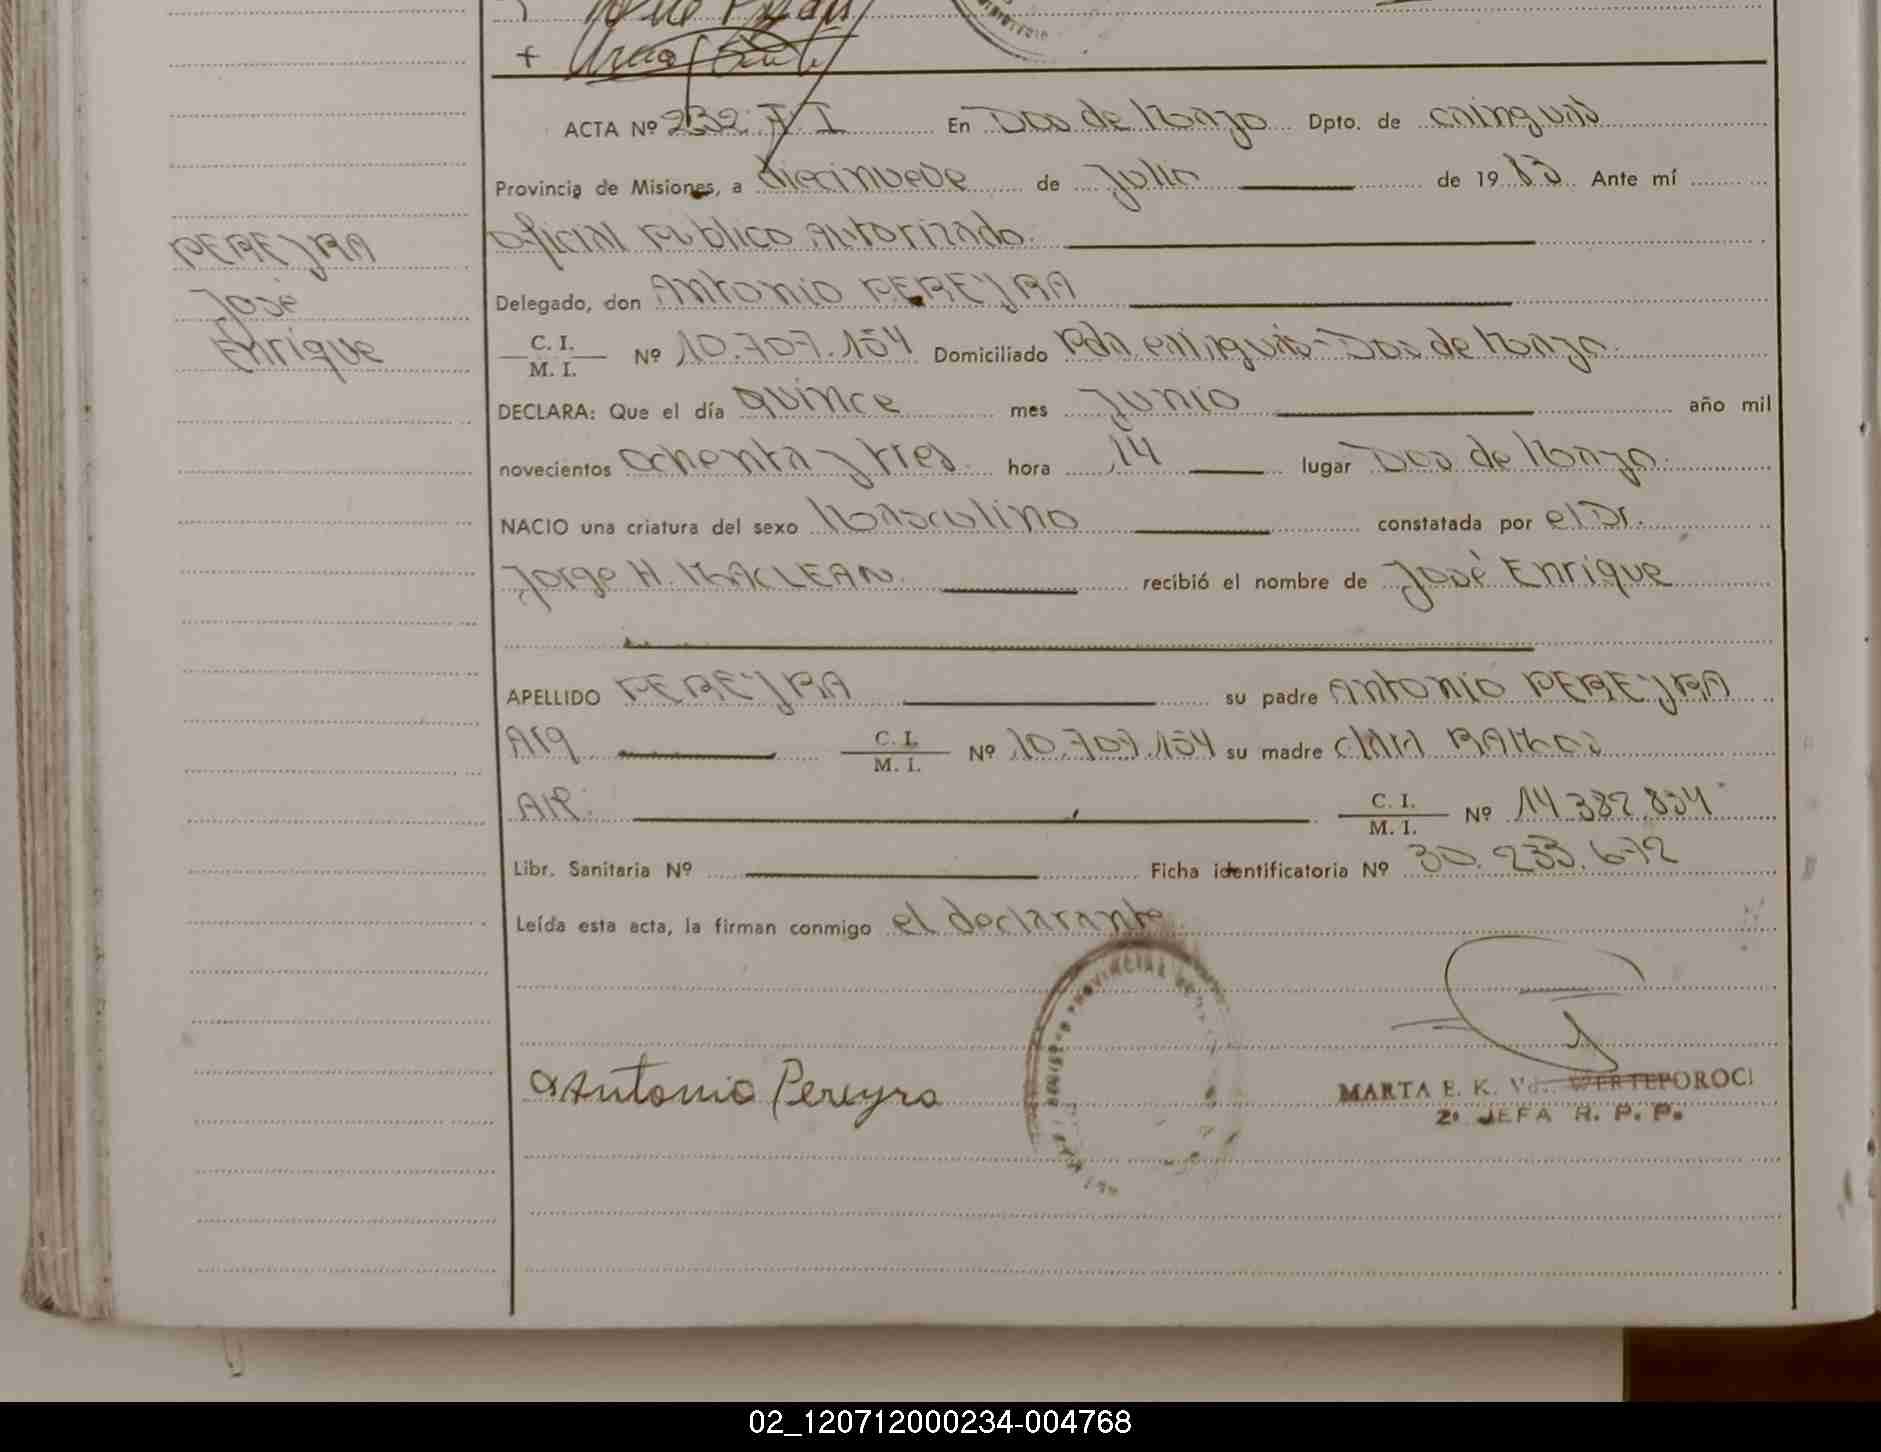 ACTA Nº 232 T/I En Dos de Mayo Dpto. de Cainguás
Provincia de Misiones, a diecinueve de Julio de 1983 Ante mí
Oficial Público Autorizado.
PEREYRA
José
Enrique
Delegado, don Antonio PEREYRA
C. I.
M. I. Nº 10.707.154 Domiciliado Pdn Cainguás-Dos de Mayo.
DECLARA: Que el día quince mes Junio año mil
novecientos ochenta y tres hora 14 lugar Dos de Mayo.
NACIO una criatura del sexo Masculino constatada por el Dr.
Jorge H. MACLEAN. recibió el nombre de José Enrique
APELLIDO PEREYRA su padre Antonio PEREYRA
Arg C. I.
M. I. Nº 10.707.154 su madre RAMOS
Arg. C. I.
M. I. Nº 14.382.834
Libr. Sanitaria Nº Ficha identificatoria Nº 30.233.672
Leída esta acta, la firman conmigo el declarante.
Antonio Pereyra
MARTA E. K. Vd. WERTEPOROCI
2º JEFA R. P. P.
02_120712000234-004768